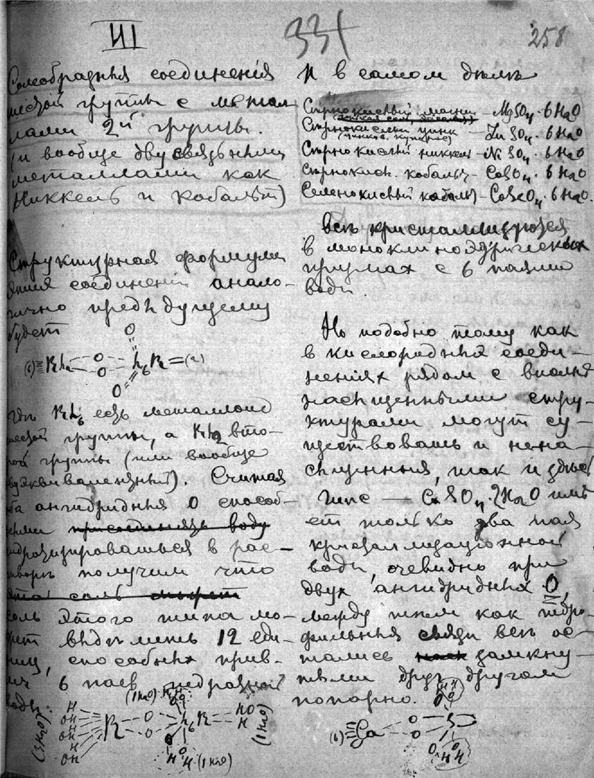 III
331
258
Солеобразныя соединенія
шестой группы с метал-
лами 2й группы.
(и вообще двусвязными
металлами как
Никкель и кобальт)
Структурная формула
этих соединений анало-
гично предъидущему
будет
где есть металлоид
шестой группы, а вто-
рой группы (или вообще
двуэквивалентный). Считая
на ангидридныя О способ-
ными присоединять воду
гидратизироваться в рас-
творѣ получим что
эта соль может
соль этого типа мо-
жет выдѣлить 12 еди-
ниц, способных прив-
лечь 6 паев гидратной
воды
И в самом дѣлѣ
Сѣрнокислый магній — MgSO4 · 6 H2O
Сѣрнокислый цинк — ZnSO4 · 6 H2O
Сѣрнокислый никкель — NiSO4 · 6 H2O
Сѣрнокисл. кобальт — CoSO4 · 6 H2O
Селенокислый кобальт — CoSeO4 · 6 H2O
всѣ кристаллизуются
в моноклиноэдрических
призмах с 6 паями
воды.
Но подобно тому как
в кислородных соеди-
неніях рядом с вполнѣ
насыщенными стру-
ктурами могут су-
ществовать и нена-
сыщенныя, так и здѣсь
Гипс — CaSO4 · 2H2O имѣ-
ет только два пая
кристаллизаціонной
воды, очевидно при
двух ангидридных О,
между тѣм как гидро-
фильныя связи всѣ ос-
тались замкну-
тыми друг другом
попарно.